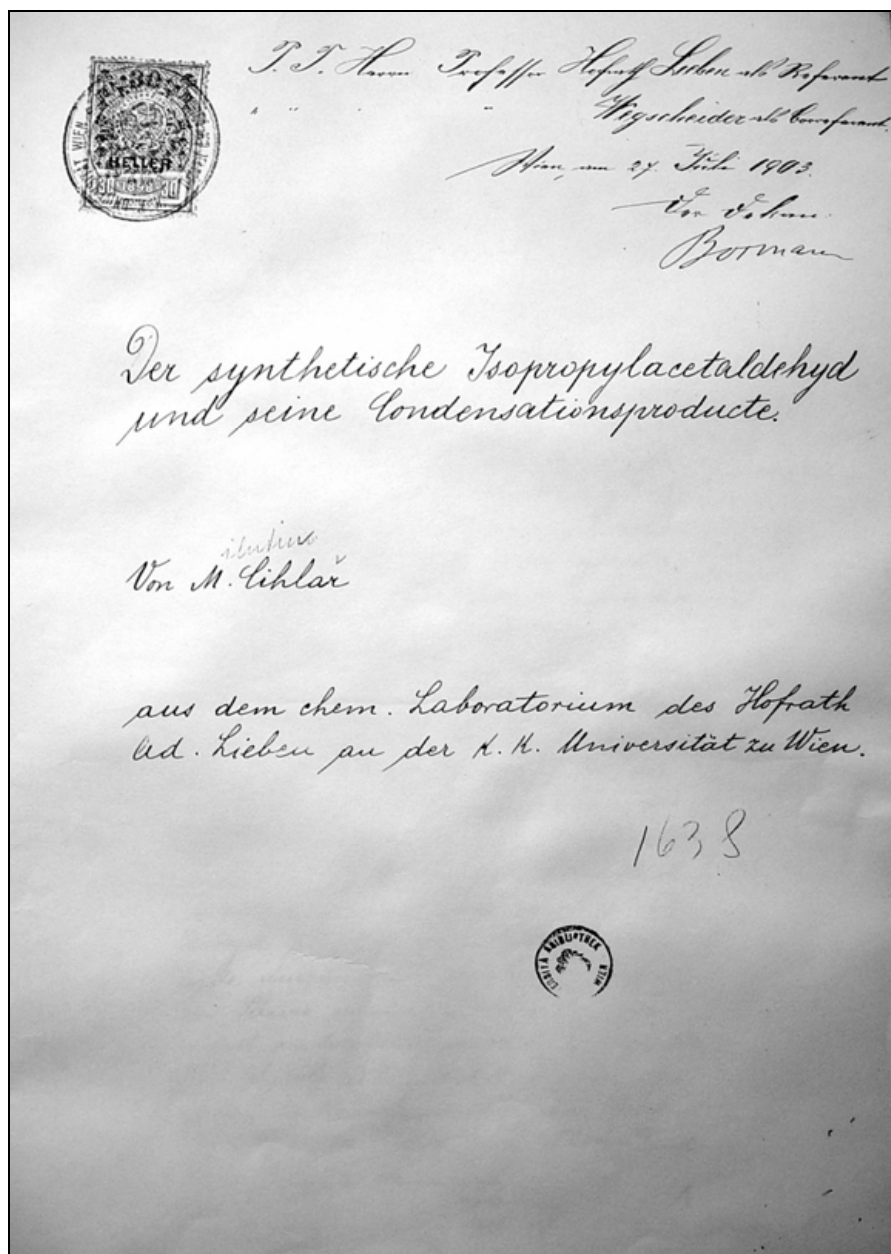 30
HELLER
1898
30 30
WIEN
P. T. Herrn Professor Hofrath Lieben als Referent
" " " Wegscheider als Correferent.
Wien, am 27. Juli 1903.
Der Dekan:
Bormann
Der synthetische Isopropylacetaldehyd
und seine Condensationsproducte.
Von M. Cihlař
aus dem chem. Laboratorium des Hofrath
Ad. Lieben an der k. k. Universität zu Wien.
1638
BIBLIOTHEK
WIEN